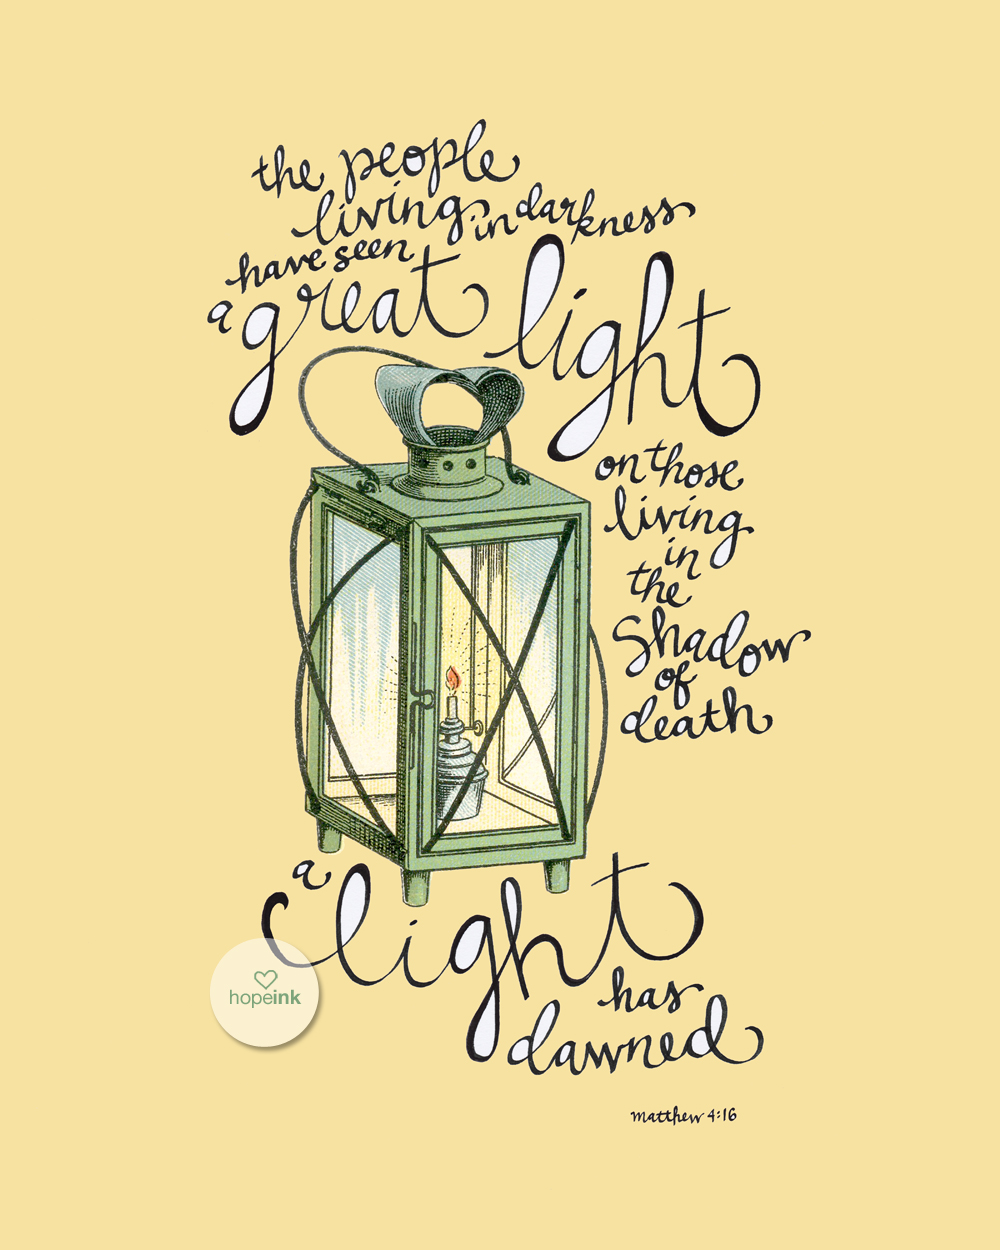 the people
living in darkness
have seen
a great light
on those
living
in
the
shadow
of
death
a light
has
dawned
hopeink
matthew 4:16